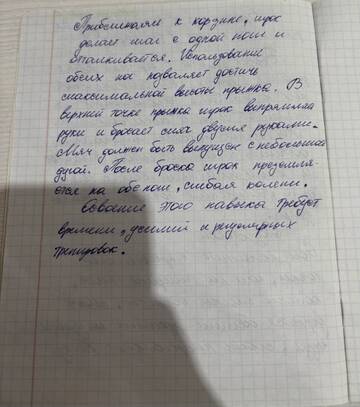 Приближаясь к корзине, игрок
делает шаг с одной ноги и
отталкивается. Использование
обеих ног позволяет достичь
максимальной высоты прыжка. В
верхней точке прыжка игрок выпрямляет
руки и бросает мяч двумя руками.
Мяч должен быть выпущен с небольшой
дугой. После броска игрок приземля-
ется на обе ноги, сгибая колени.
Освоение этого навыка требует
времени, усилий и регулярных
тренировок.